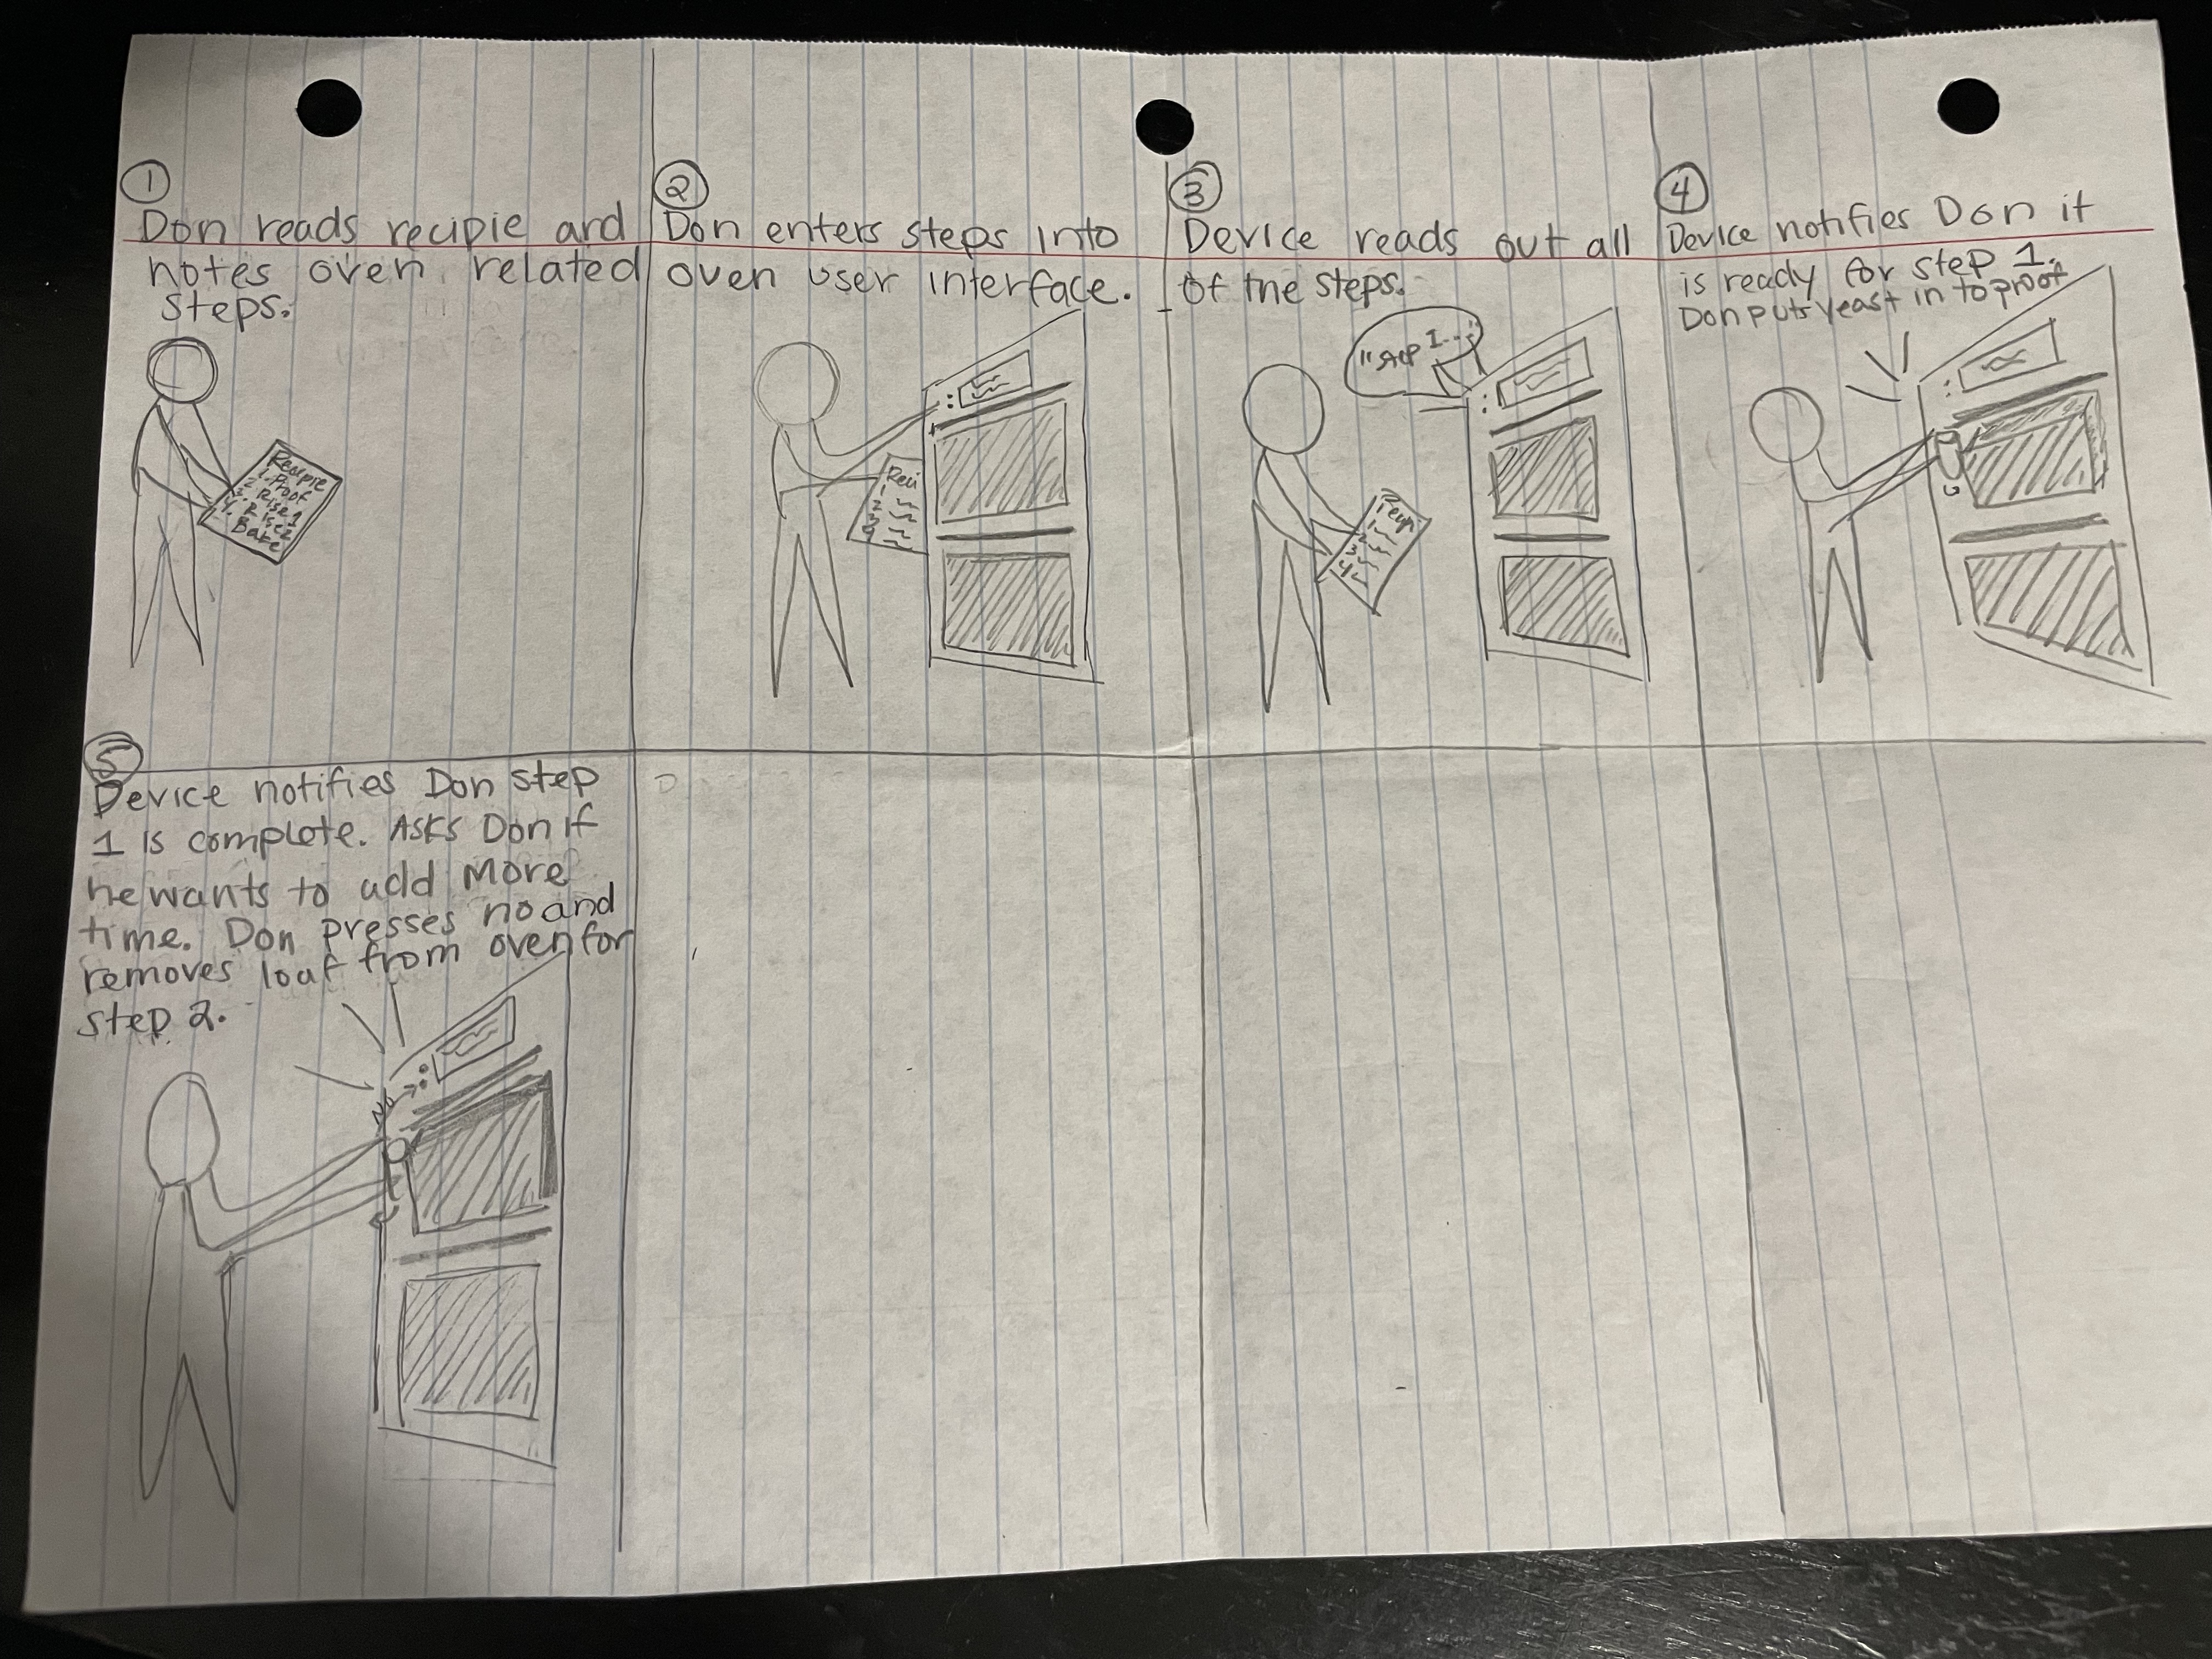 ①
Don reads recipie and
notes oven related
steps.
Recipie
1. Proof
2. Rise 1
3. Rise 2
4. Bake
②
Don enters steps into
oven user interface.
Reci
1
2
3
4
③
Device reads out all
of the steps.
"Step 1..."
Recip
1
2
3
4
④
Device notifies Don it
is ready for step 1.
Don puts yeast in to proof
⑤
Device notifies Don step
1 is complete. Asks Don if
he wants to add more
time. Don presses no and
removes loaf from oven for
step 2.
No